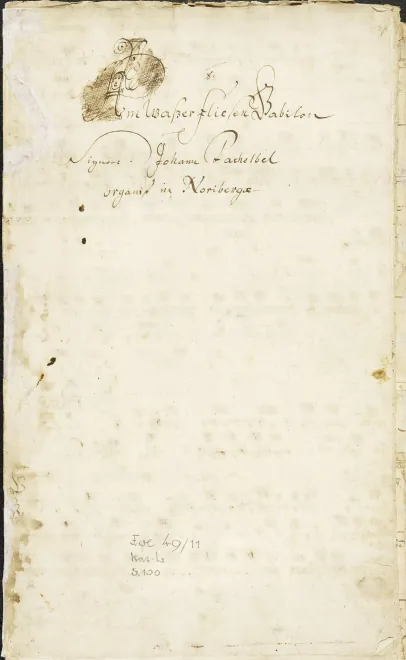 8.
Am Waßer fliesen Babilon
Signore. Johann Pachelbel
organist in Noribergæ
Fol 49/11